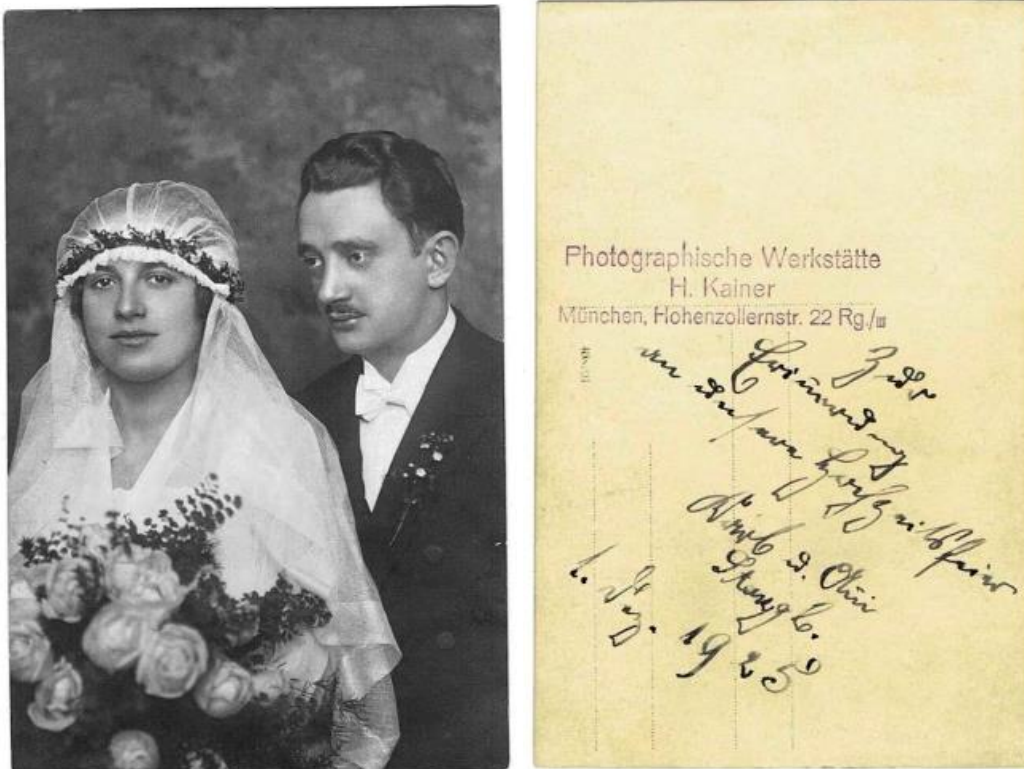 Photographische Werkstätte
H. Kainer
München, Hohenzollernstr. 22 Rg./III
Zur
Erinnerung
an unsere Hochzeitsfeier
u.
Stangl.
1. Dez. 1925